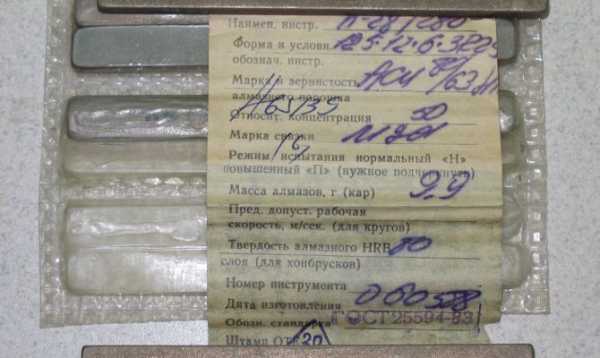 Наимен. инстр.
Форма и условн. 125·12·6·
обознач. инстр.
Марка и зернистость АСМ
алмазного порошка
Относит. концентрация 50
Марка связки
Режим испытания нормальный «Н»
повышенный «П» (нужное подчеркнуть)
Масса алмазов, г (кар) 9.9
Пред. допуст. рабочая
скорость, м/сек. (для кругов)
Твердость алмазного HRB 80
слоя (для хонбрусков)
Номер инструмента
Дата изготовления
Обозн. стандарта ГОСТ 25594-83
Штамп ОТК 20